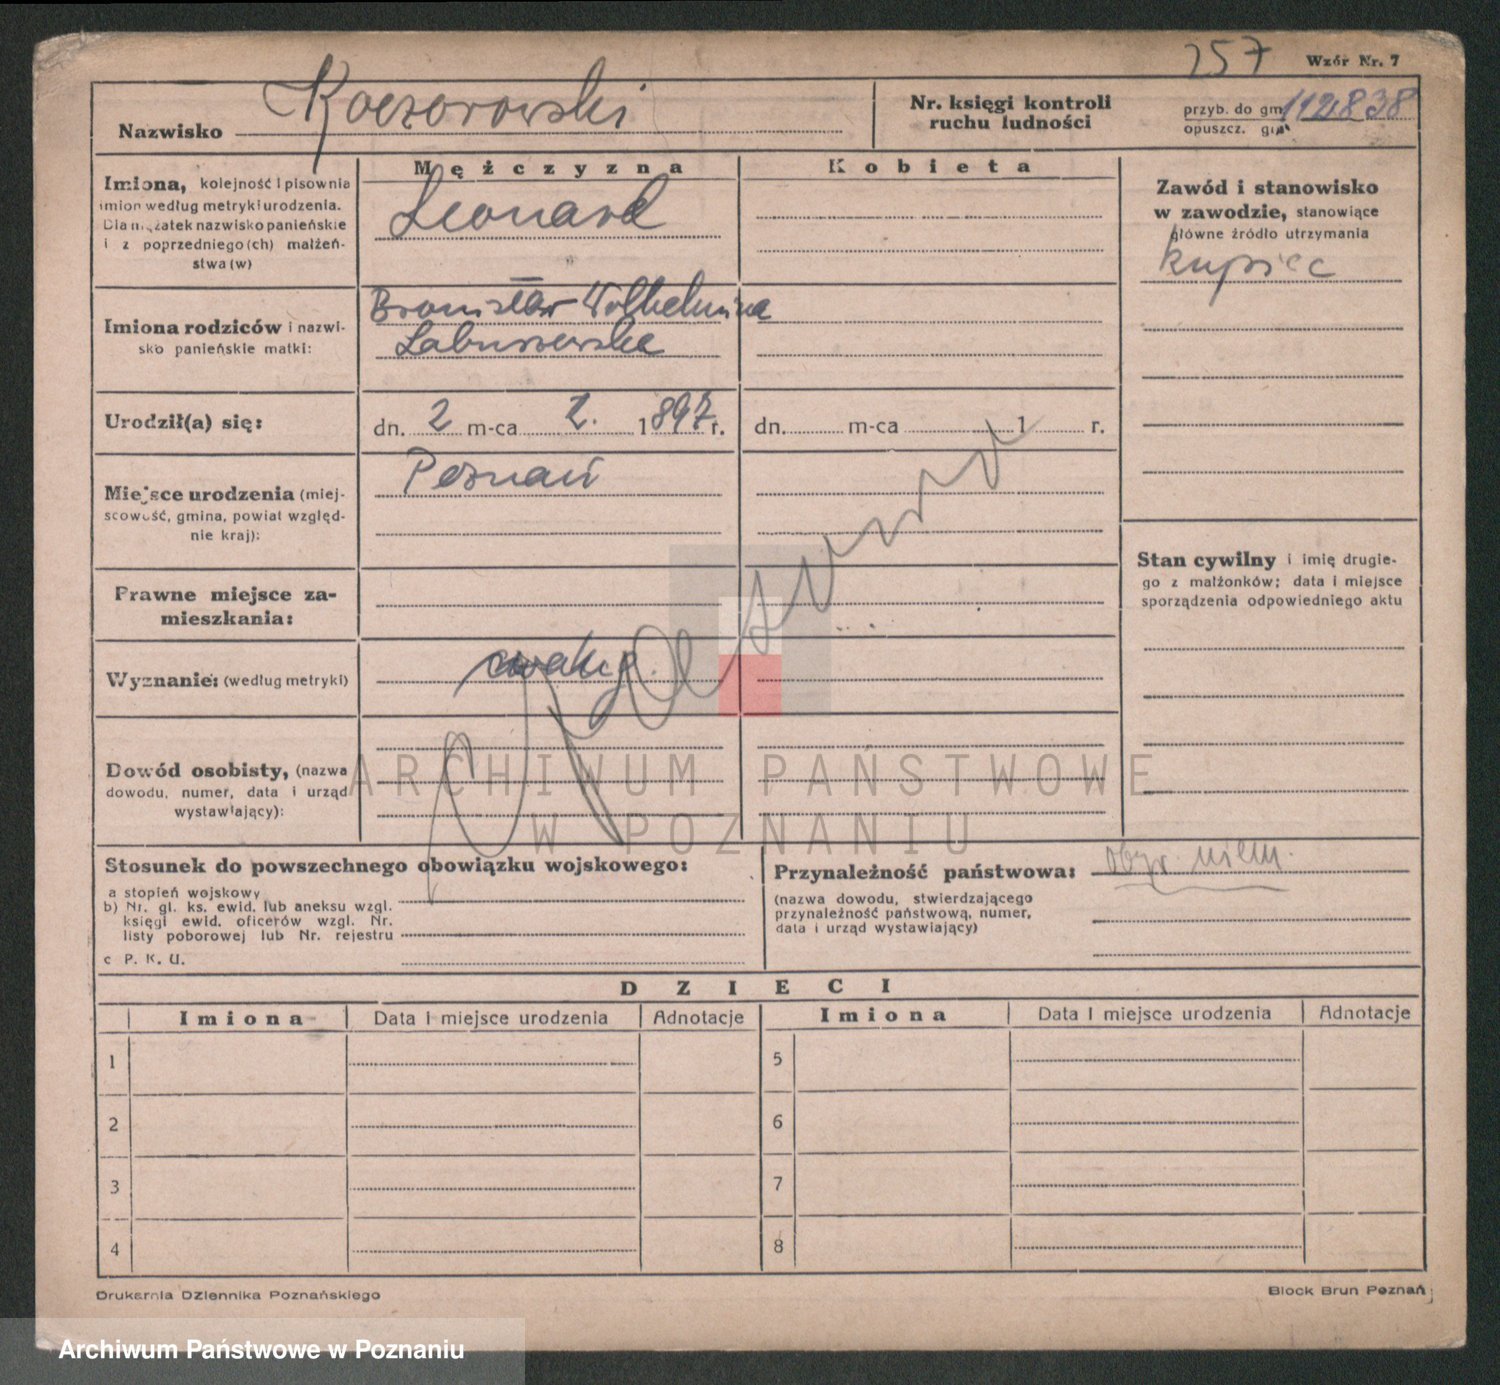 257 Wzór Nr. 7
Nazwisko Kaczorowski
Nr. księgi kontroli
ruchu ludności
przyb. do gm. 112838
opuszcz. gm.
Mężczyzna Kobieta
Imiona, kolejność i pisownia
imion według metryki urodzenia.
Dla mężatek nazwisko panieńskie
i z poprzedniego (ch) małżeń-
stwa (w)
Leonard
Zawód i stanowisko
w zawodzie, stanowiące
główne źródło utrzymania
kupiec
Imiona rodziców i nazwi-
sko panieńskie matki:
Bronisław Wilhelmina
Labuszewska
Urodził(a) się:
dn. 2 m-ca 2. 1897 r. dn. m-ca 1 r.
Miejsce urodzenia (miej-
scowość, gmina, powiat względ-
nie kraj):
Poznań
Prawne miejsce za-
mieszkania:
Stan cywilny i imię drugie-
go z małżonków; data i miejsce
sporządzenia odpowiedniego aktu
Wyznanie: (według metryki)
Dowód osobisty, (nazwa
dowodu, numer, data i urząd
wystawiający):
ARCHIWUM PAŃSTWOWE
W POZNANIU
Stosunek do powszechnego obowiązku wojskowego:
a stopień wojskowy
b) Nr. gl. ks. ewid. lub aneksu wzgl.
księgi ewid. oficerów wzgl. Nr.
listy poborowej lub Nr. rejestru
c P. K. U.
Przynależność państwowa: obyw niem.
(nazwa dowodu, stwierdzającego
przynależność państwową, numer,
data i urząd wystawiający)
DZIECI
Imiona Data i miejsce urodzenia Adnotacje Imiona Data i miejsce urodzenia Adnotacje
1 5
2 6
3 7
4 8
Drukarnia Dziennika Poznańskiego Block Brun Poznań
Archiwum Państwowe w Poznaniu